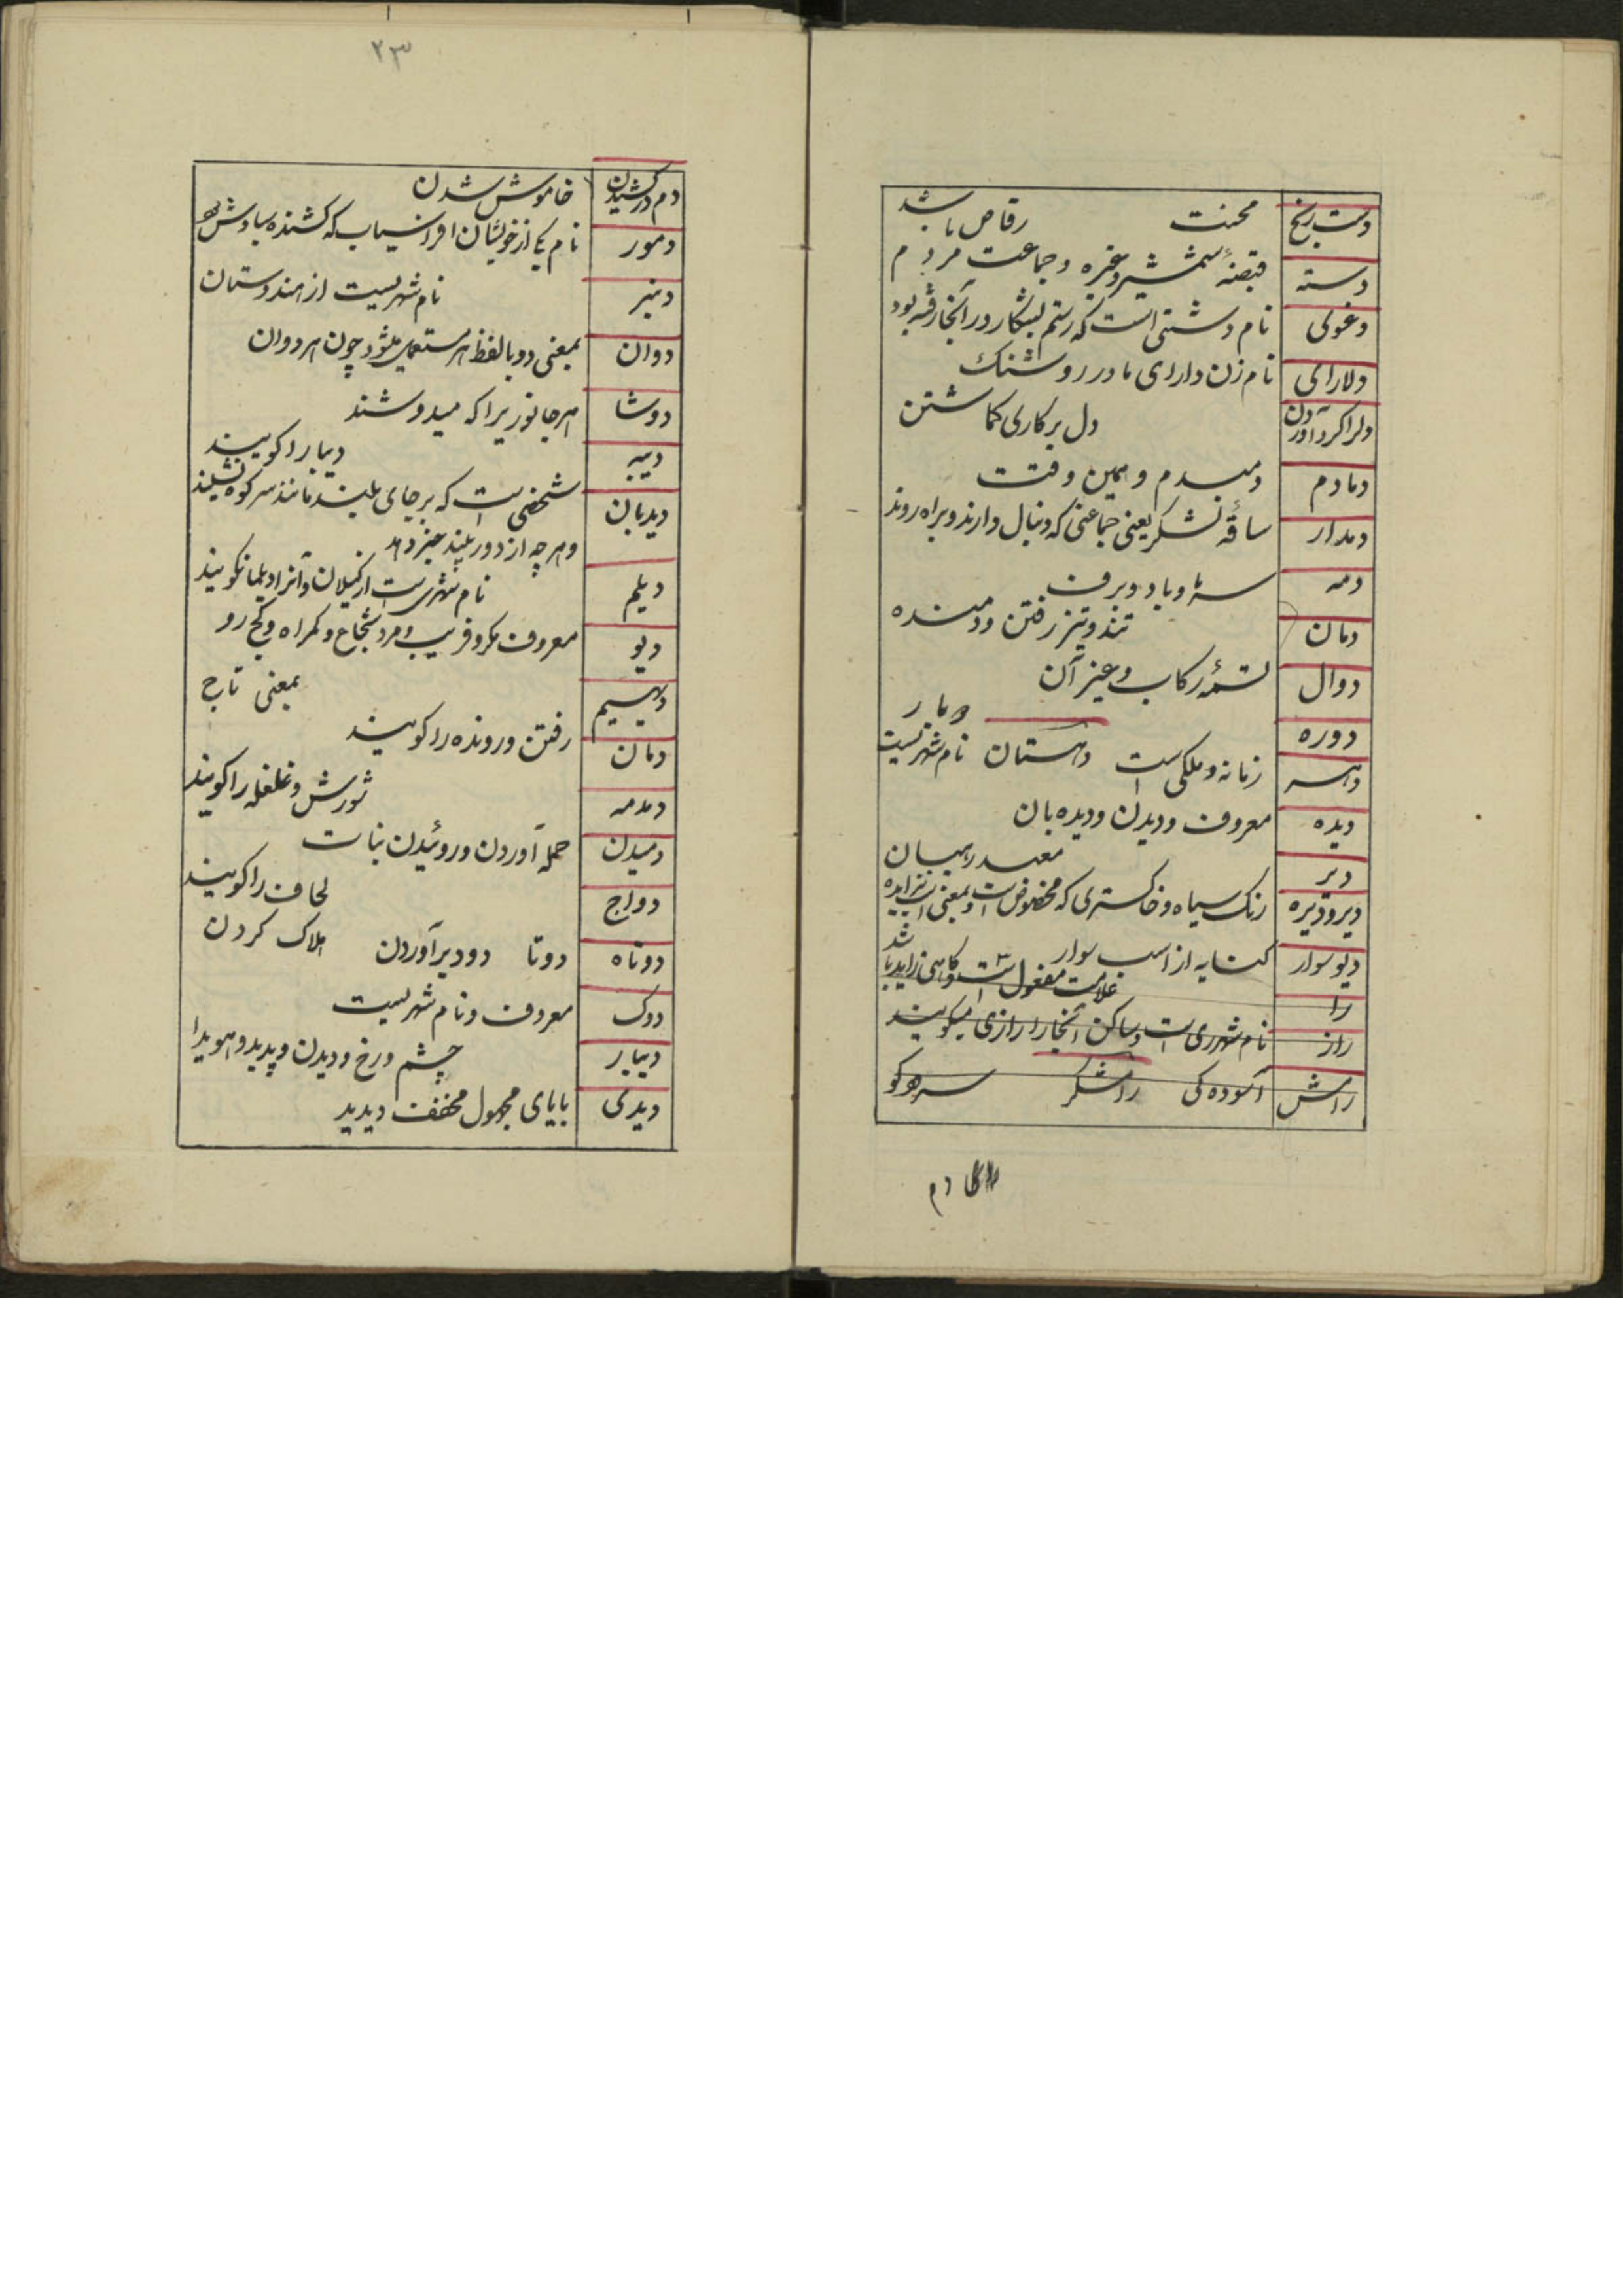 دست رنج محنت رقاص باشد
دسته قبضهٔ شمشیر و غیره و جماعت مردم
دغوی نام دشتی است که رستم بشکار در آنجا رفته بود
دلارای نام زن دارای مادر روشنک
دل بر کاری کماشتن
دمادم دمبدم و همین وقت
دمدار ساقه لشکر یعنی جماعتی که دنبال دارند و براه روند
دمه سرما و باد و برف
دمان تند و تیز رفتن و دمنده
دوال تسمهٔ رکاب و غیر آن
دوره
زمانه و ملکی است دهستان نام شهریست
دیده معروف و دیدن و دیده بان
دیر معبد راهبان
دیر و دیزه رنک سیاه و خاکستری که مخصوص است و بمعنی
دیو سوار کنایه از اسب سوار باشد
را علامت مفعول است و کاهی زاید
راز نام شهری است و ساکن آنجا را رازی میکویند
رامش آسوده کی رامشکر سرود کو
۲۳
دم درکشیدن خاموش شدن
دمور نام یکی از خویشان افراسیاب که کشنده سیاوش
دنبر نام شهریست از هندوستان
دوان بمعنی دو با لفظ هر مستعمل میشود چون هر دوان
دوشا هر جانوریرا که میدوشند
دیبه دیبا را کویند
دیدبان شخصی است که بر جای بلند مانند سر کوه نشیند
و هر چه از دور بیند خبر دهد
دیلم نام شهری است از کیلان و آنرا دیلمان کویند
دیو معروف مکر و فریب و مرد شجاع و کمراه و کج رو
دیهیم بمعنی تاج
دمان رفتن و رونده را کویند
دمدمه شورش و غلغله را کویند
دمیدن حمله آوردن و روئیدن نبات
دواج لحاف را کویند
دوتاه دوتا دود برآوردن هلاک کردن
دوک معروف و نام شهریست
دیدار چشم و رخ و دیدن و پدید و هویدا
دیدی بایای مجهول مخفف دیدید